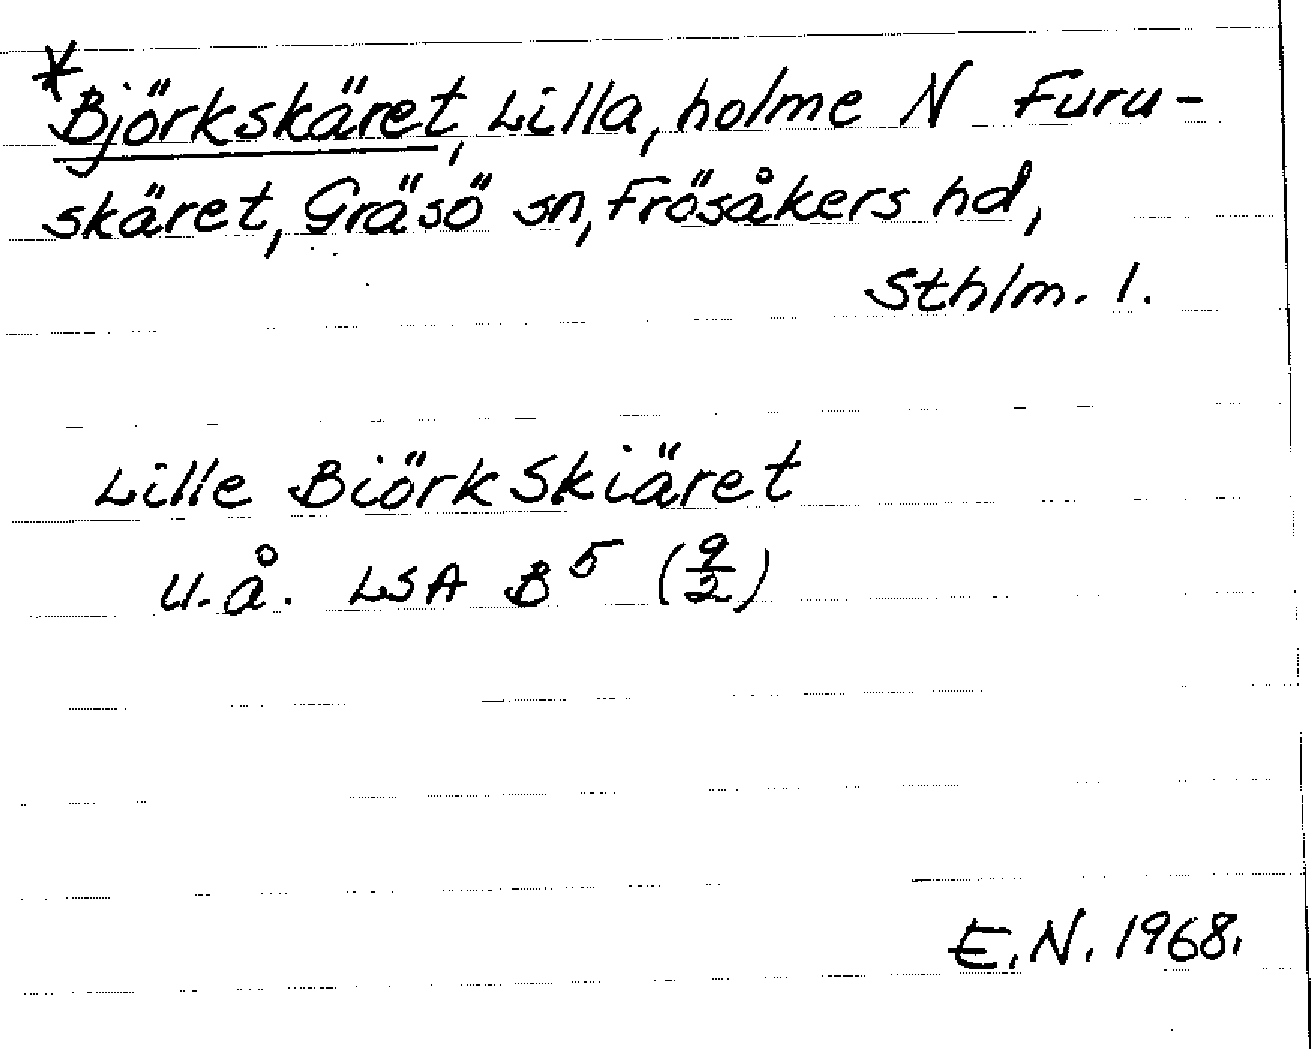 *Björkskäret, Lilla, holme N Furu-
skäret, Gräsö sn, Frösåkers hd,
Sthlm. l.
Lille Biörk Skiäret
u. å. LSA B⁵ (9/2)
E. N. 1968.